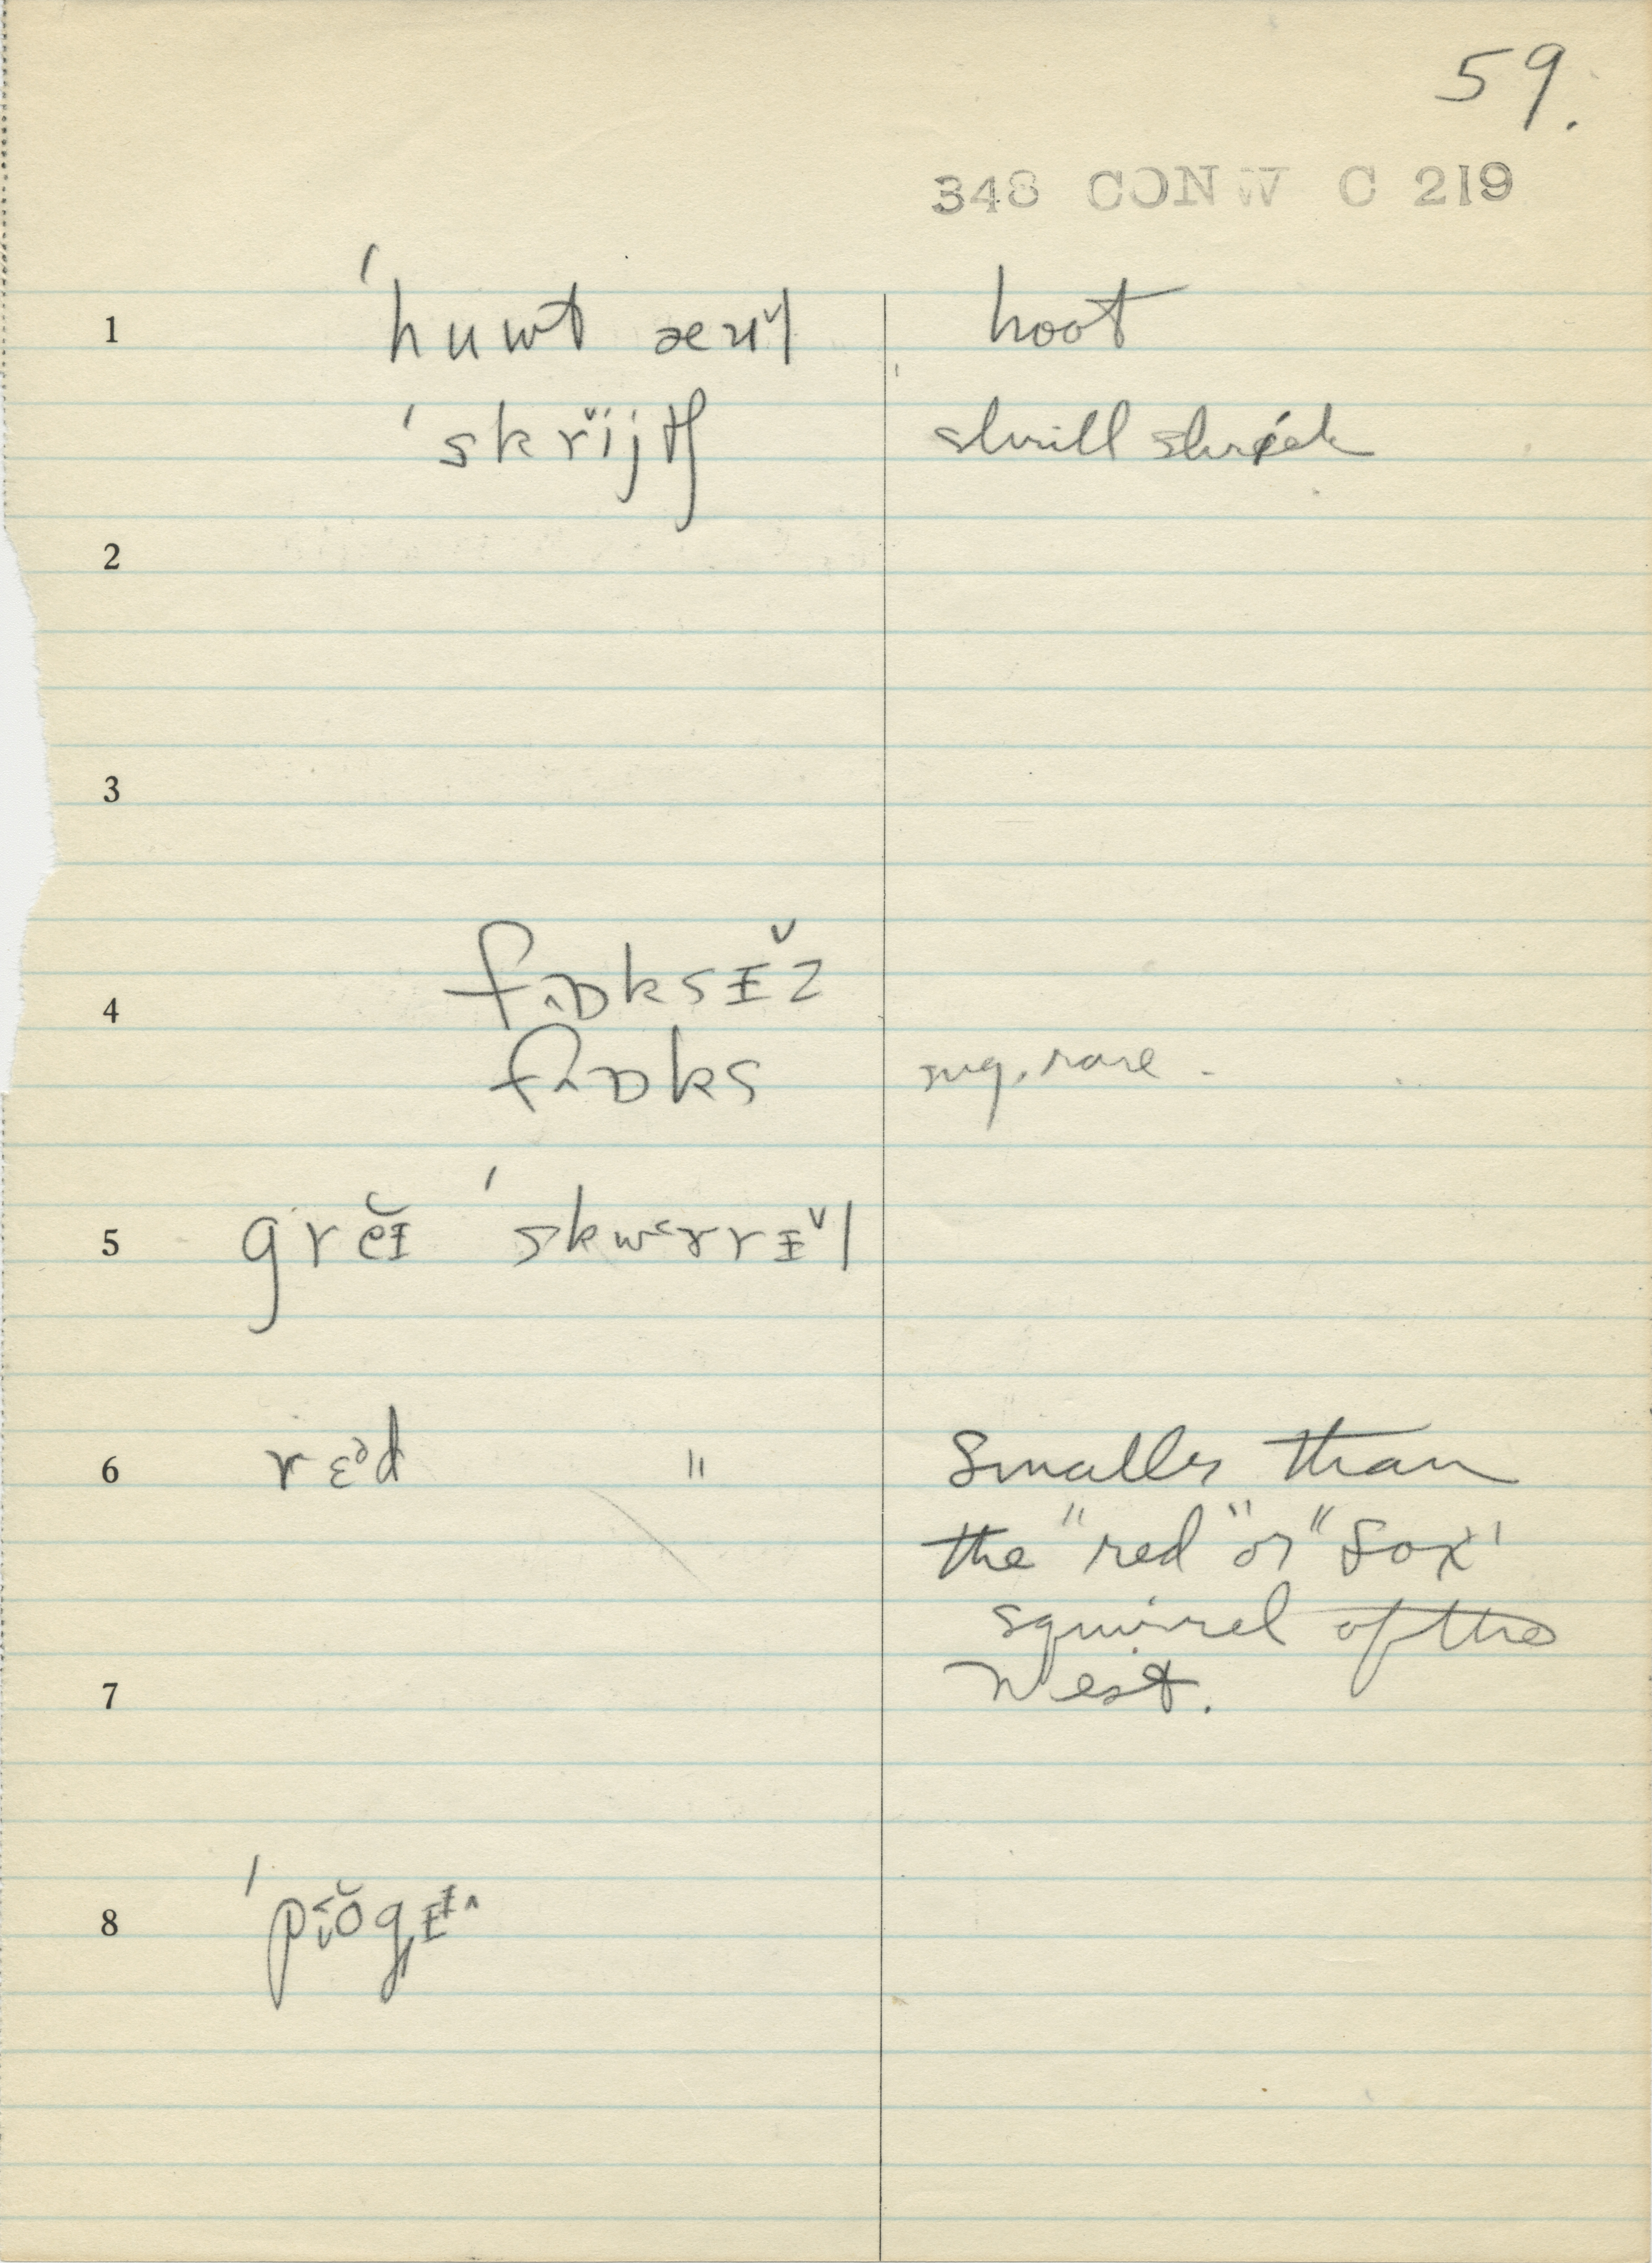 59.
348 CONW C 219
1 ˈhuwt æʊ̌l hoot
ˈskrǐjtʃ shrill shriek
2
3
4 fɒksɪ̌z
fɒks sng. rare.
5 grěɪ ˈskwɜrrɪ̌l
6 rɛᵊd " Smaller than
the "red" or "fox'
squirrel of the
7 West.
8